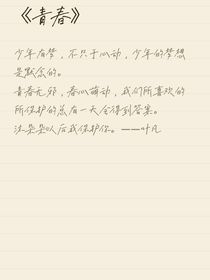 《青春》
少年有梦，不只于心动，少年的梦想
是默念的。
青春无邪，春心萌动，我们所喜欢的
所保护的总有一天会得到答案。
沈朵朵以后我保护你。——叶凡